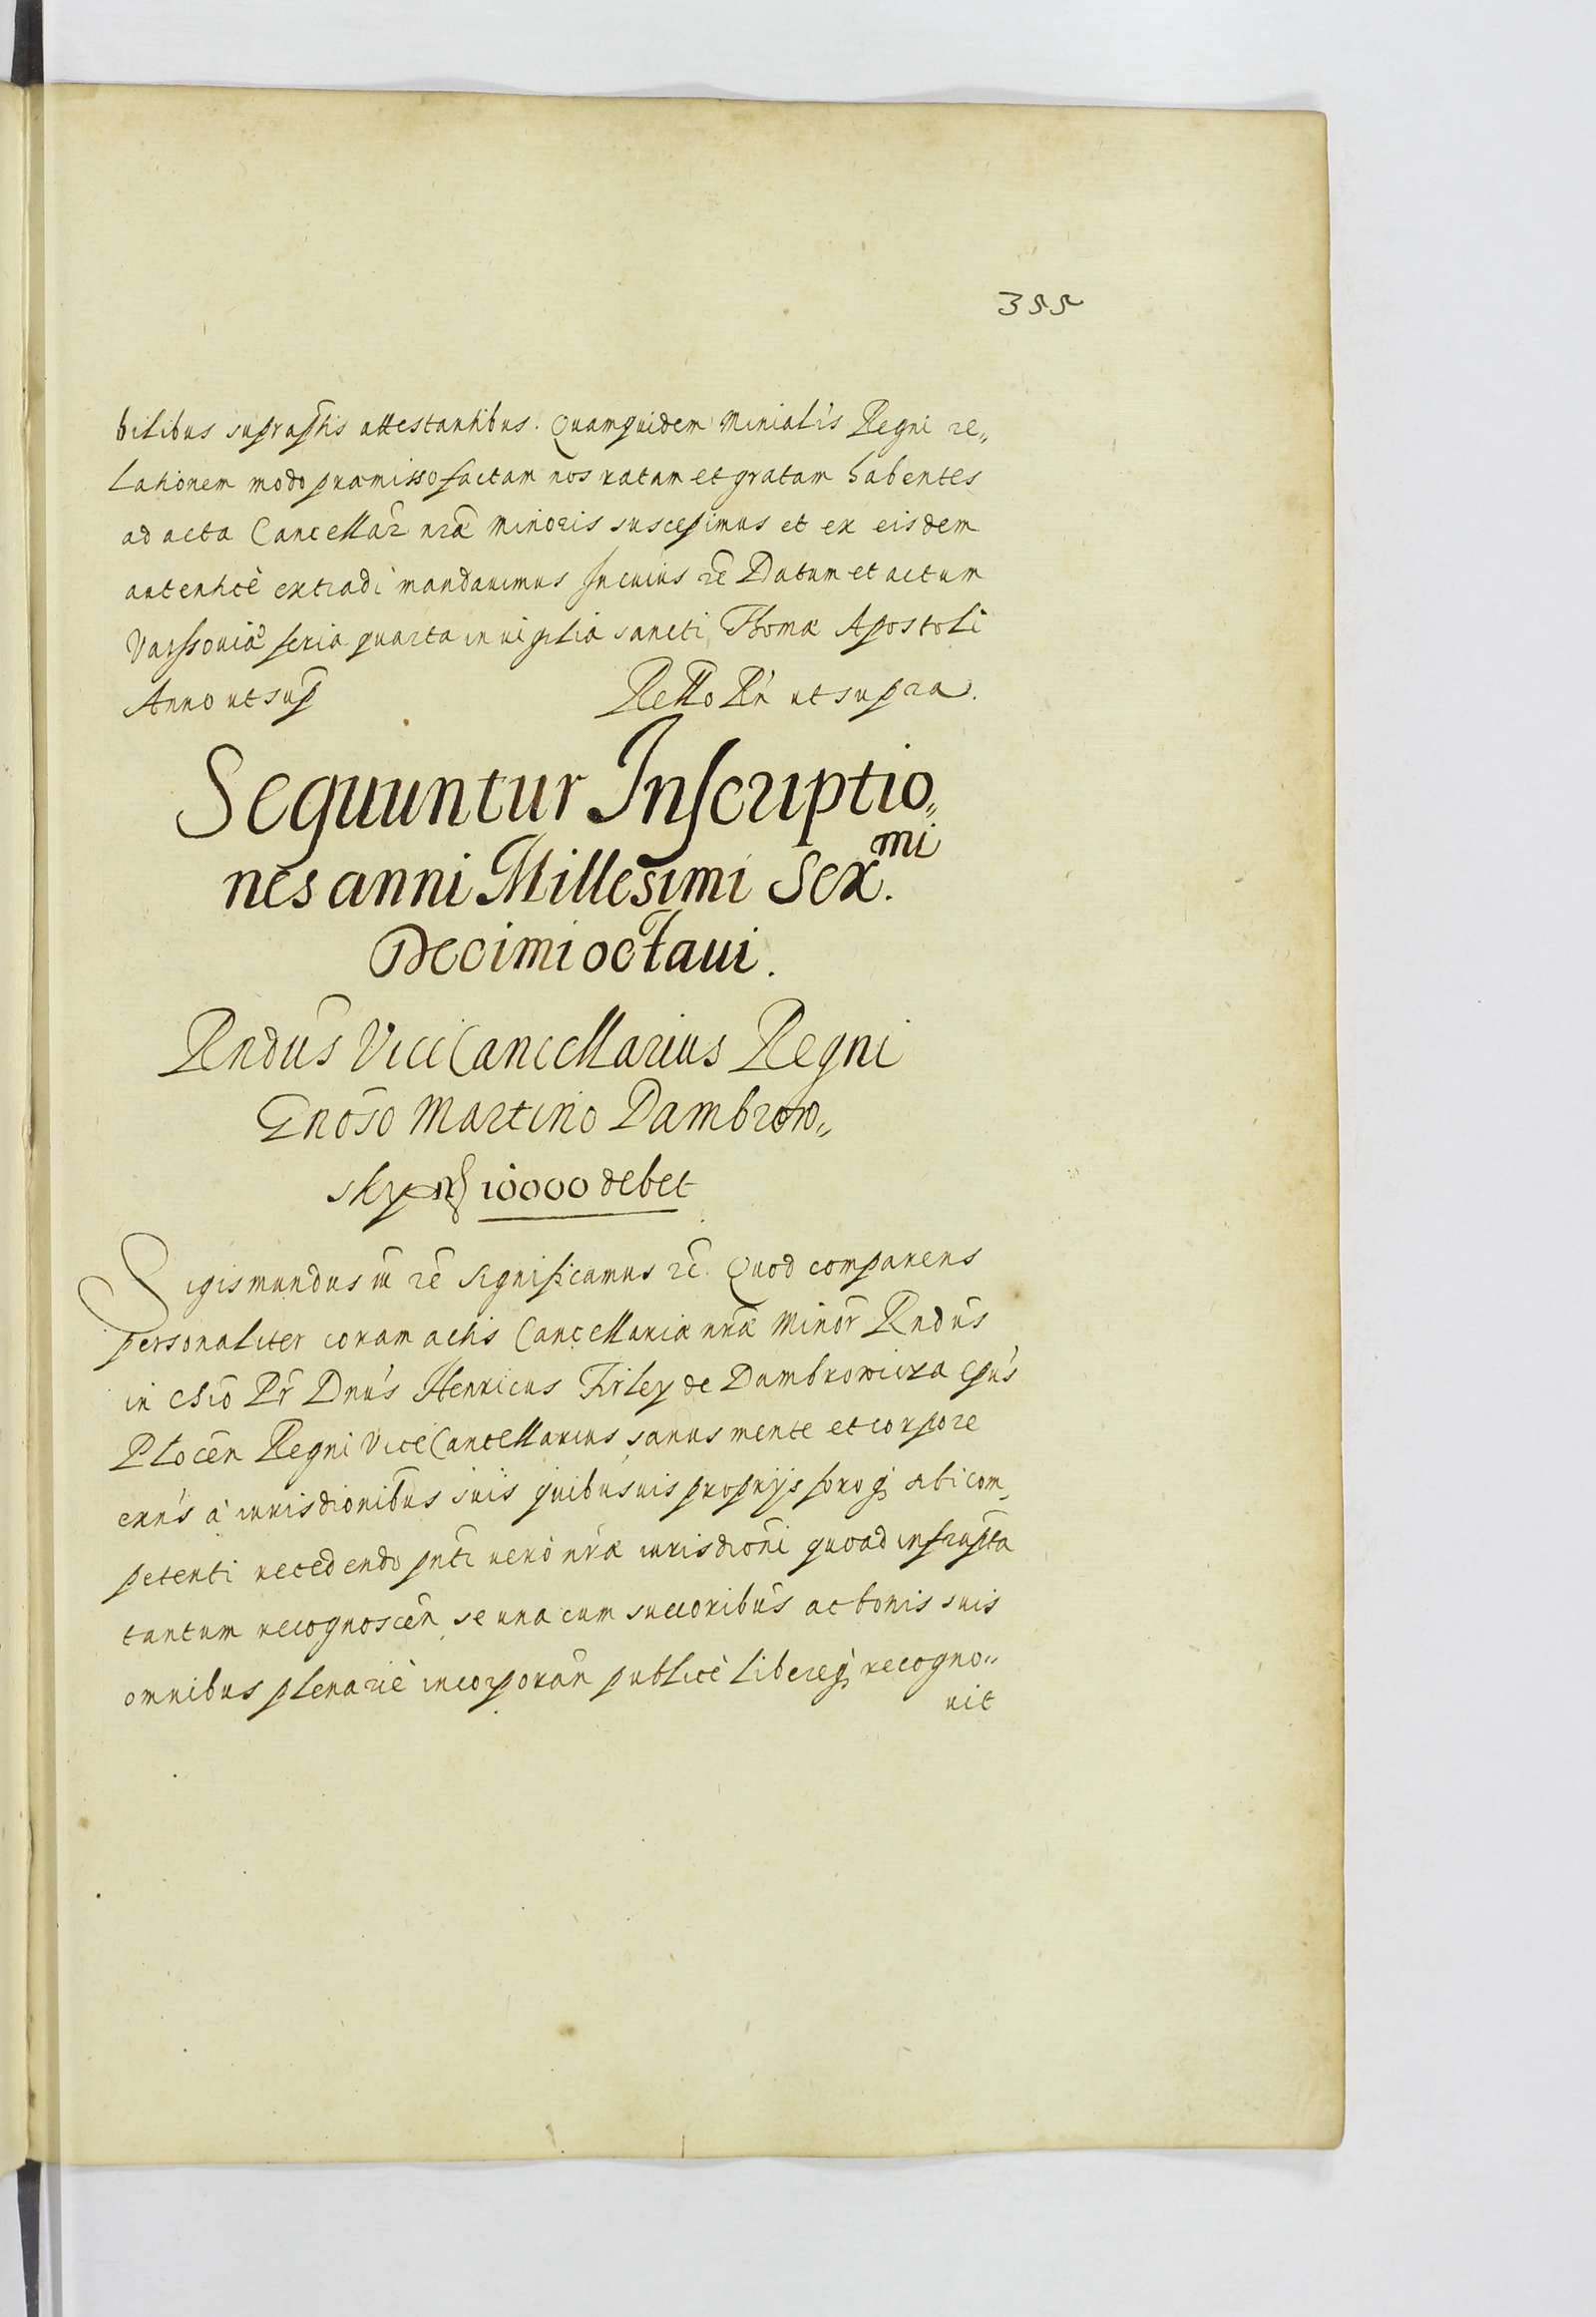 355
bilibus supraptis attestantibus. Quamquidem Minialis Regni re„
lationem modo præmisso factam nos ratam et gratam habentes
ad acta Cancellar nrã Minoris suscepimus et ex eisdem
autenticè extradi mandauimus In cuius rē Datum et actum
Varssouiæ feria quarta in uigilia sancti Thomæ Apostoli
Anno ut sup Rello Rñ ut supra.
Sequuntur Inscriptio„
nes anni Millesimi Sex.mi
Decimi octaui.
Rndūs ViceCancellarius Regni
Gnoso Martino Dambrow„
sky 10000 debet
Sigismundus III rē significamus rē. Quod comparens
personaliter coram actis Cancellariæ nræ Minor Rndūs
in Chīo Pr Dnūs Henricus Firley de Dambrowicza Epūs
Plocēn Regni ViceCancellarius sanus mente et corpore
exnūs à iurisdionibūs suis quibusuis proprijs foroq sibi com„
petenti recedendo pnti uerò nræ iurisdioni quoad infrapta
tantum recognoscēn se una cum succoribūs ac bonis suis
omnibus plenariè incorporān publicè libereq recogno„
uit